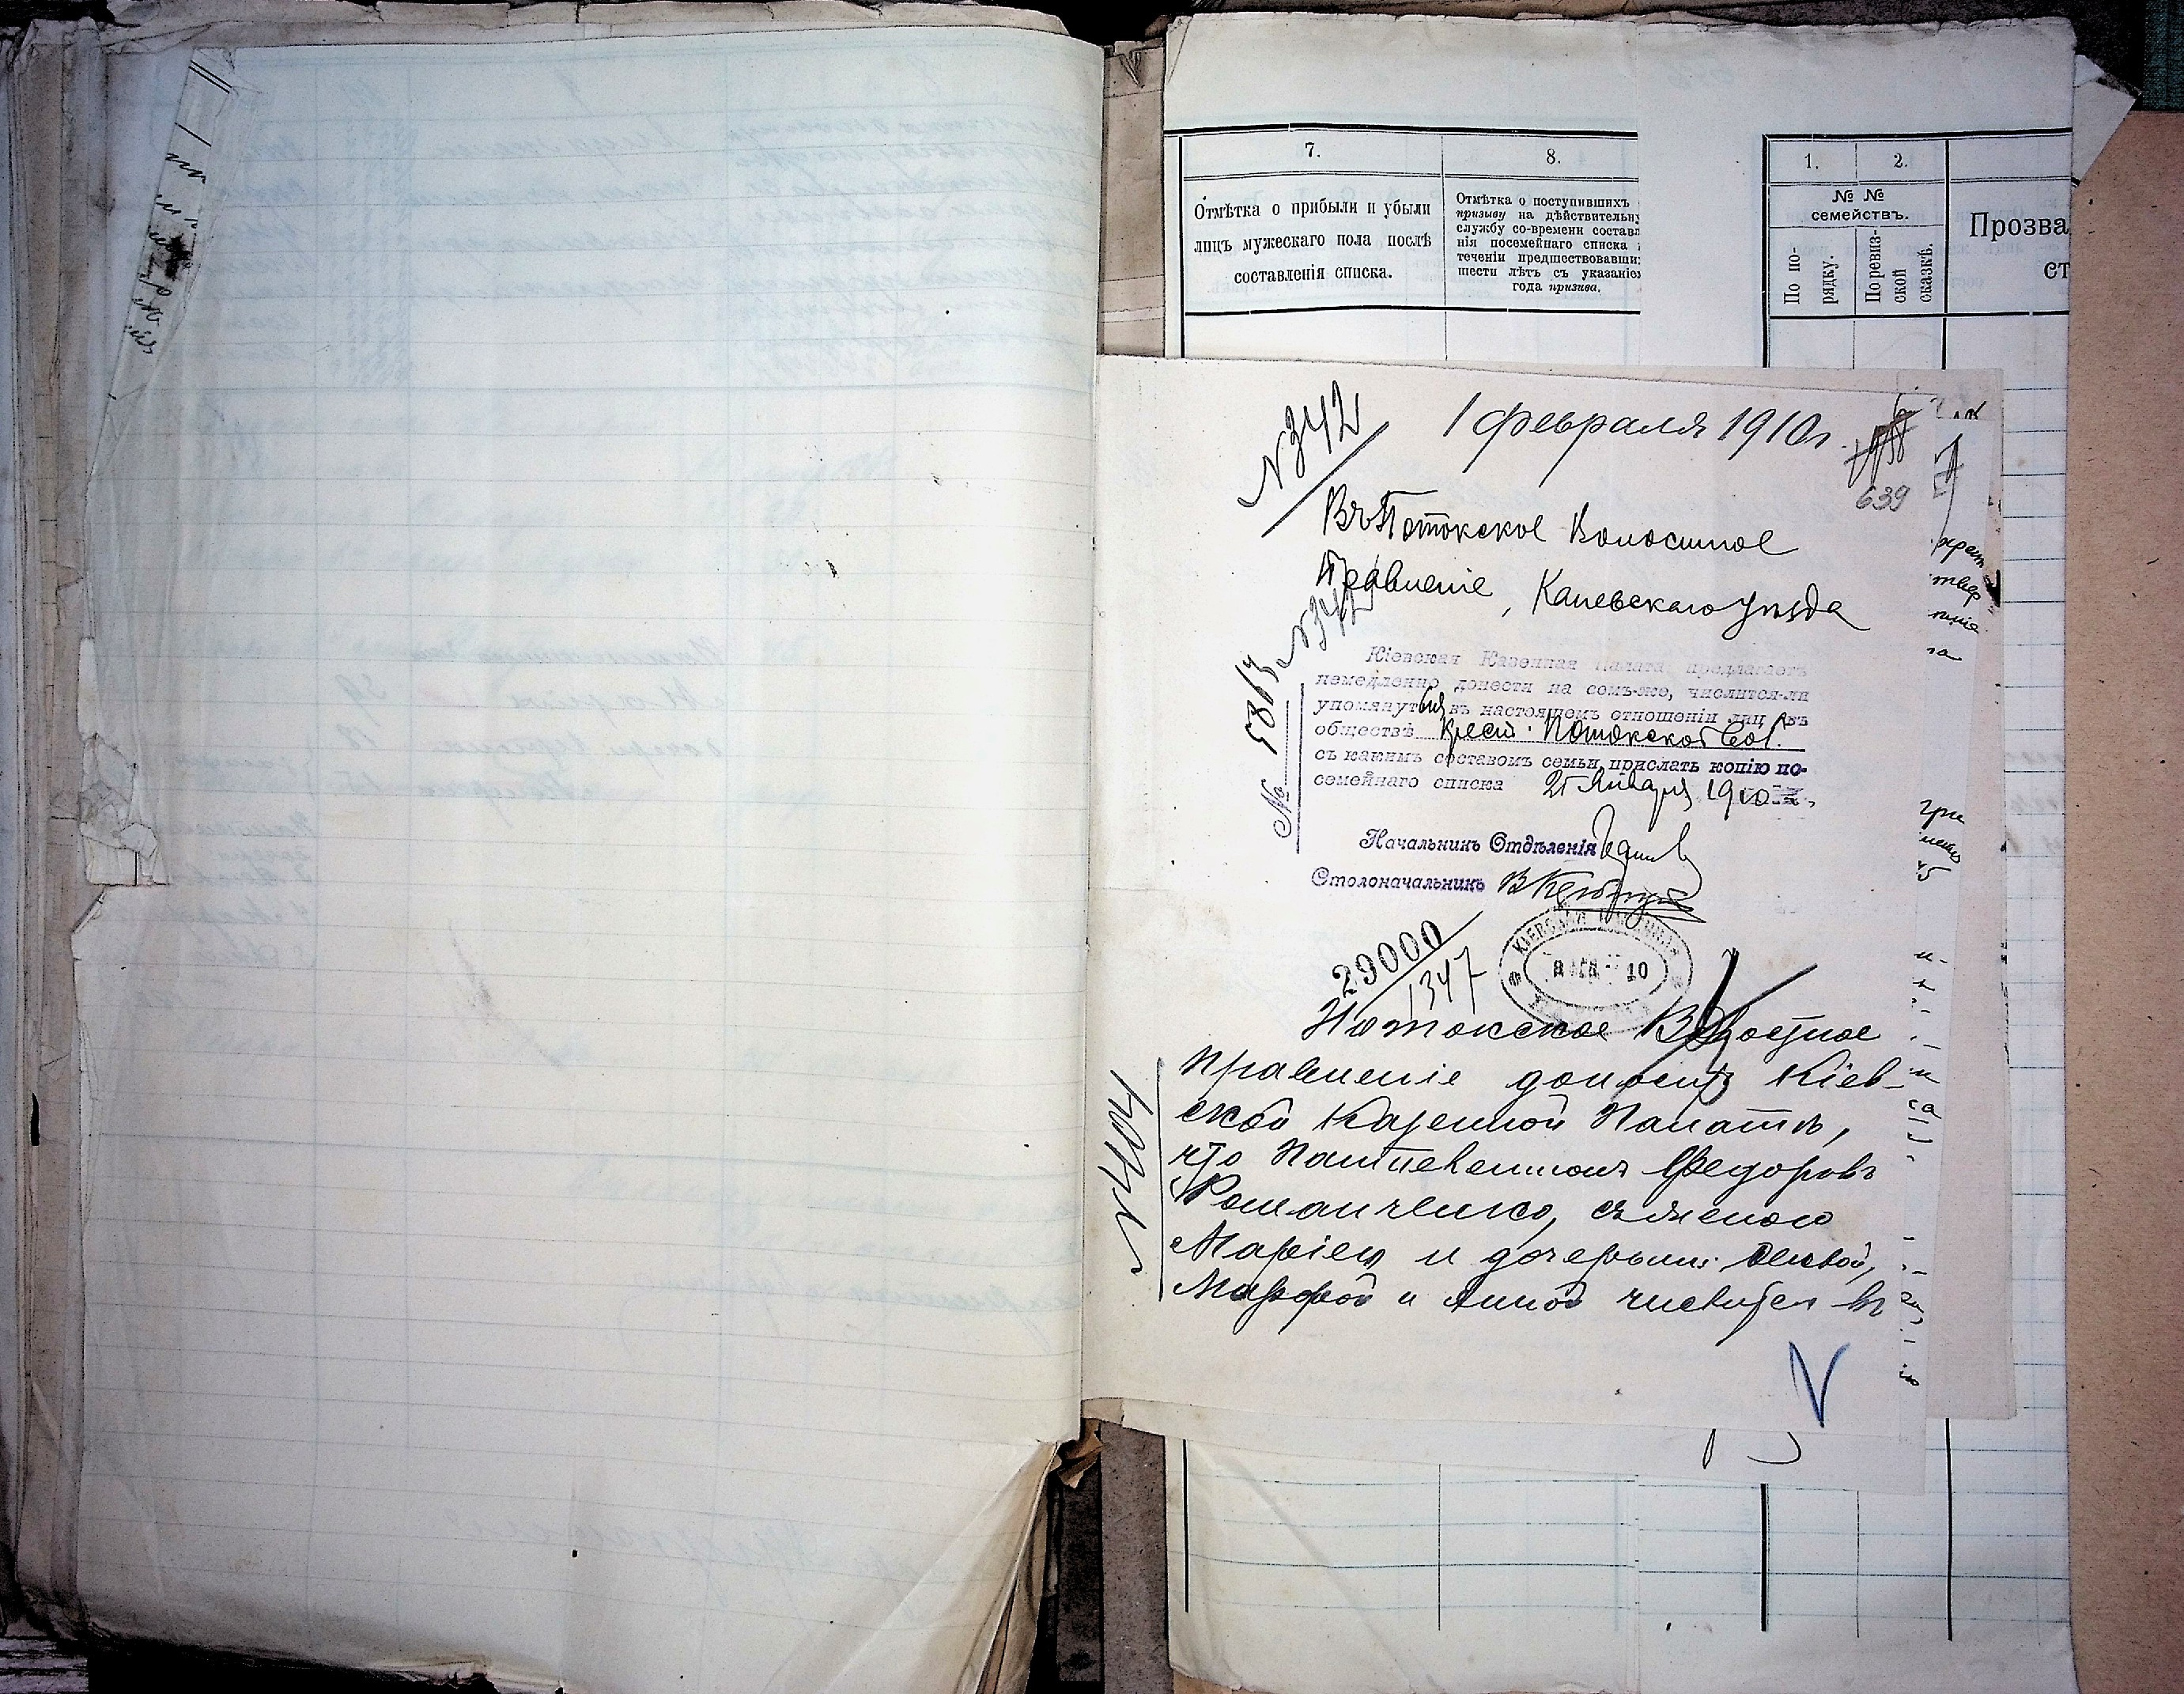 7.
8.
Отмѣтка о прибыли и убыли
лицъ мужескаго пола послѣ
составленія списка.
Отмѣтка о поступившихъ
призыву на дѣйствительну
службу со-времени составл
нія посемейнаго списка
теченіи предшествовавши
шести лѣтъ съ указаніе
года призыва.
1.
2.
№ №
семействъ.
По по-
рядку.
По ревиз-
ской
сказкѣ.
Прозва
ст
№342
1 февраля 1910 г.
639
Въ Потокское Волостное
Правленіе, Каневскаго уѣзда
№342
Кіевская Казенная Палата предлагаетъ
немедленно донести на семъ-же, числится-ли
упомянутый въ настоящемъ отношеніи лиц въ
обществѣ крест. Потокской вол.
съ какимъ составомъ семьи, прислать копію по-
семейнаго списка 25 Января 1910 г.
№ 5863
Начальникъ Отдѣленія
Столоначальникъ
29000
1347
10
Потокское Волостное
Правленіе доноситъ Кіев-
ской Казенной Палатѣ,
что Пантелеимонъ Федоровъ
Романченко, съ женою
Маріею и дочерьми:
Марфой и Анной числится въ
№404